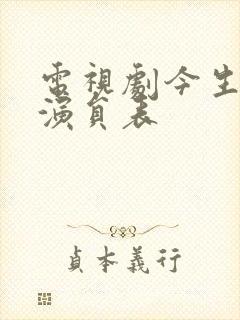 電視劇今生
演員表
貞本義行